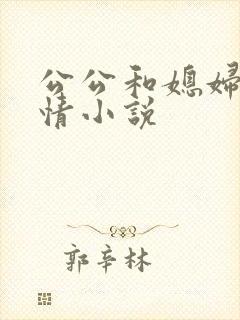 公公和媳婦
情小説
郭辛林